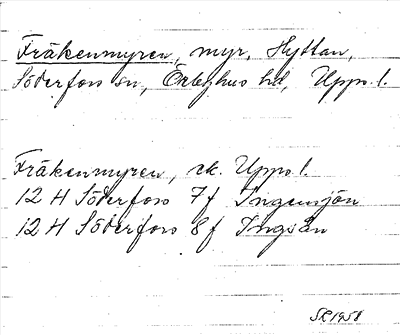 Fräkenmyren, myr, Hyttan,
Söderfors sn, Örbyhus hd, Upps. l.
Fräkenmyren, ek. Upps l.
12 H Söderfors 7 f Ingemsjön
12 H Söderfors 8 f Ingsån
SR 1958